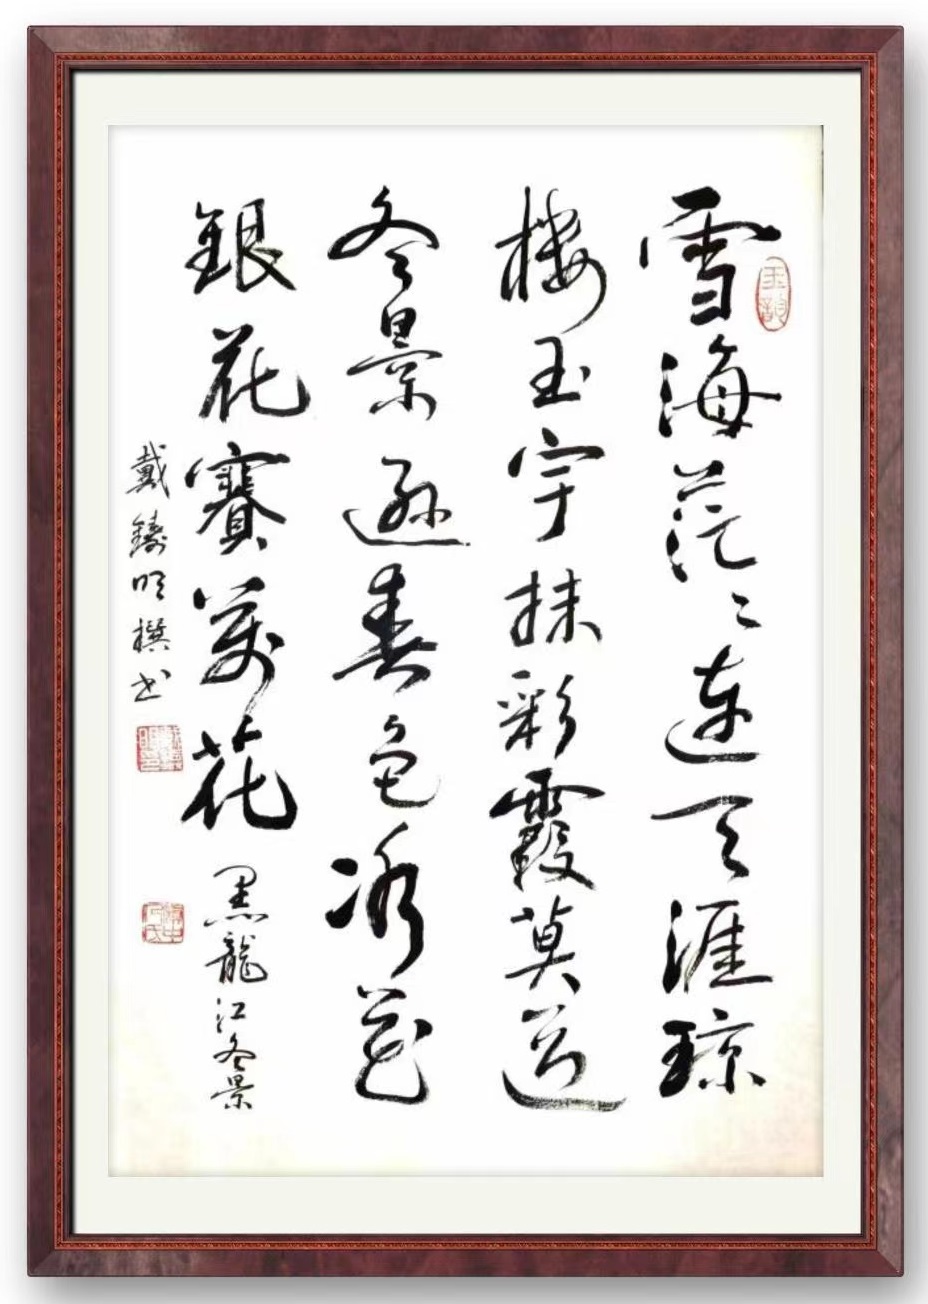 雪海茫々連天涯琼
樓玉宇抹彩霞莫道
冬景遜春色冰花
銀花賽萬花 黑龍江冬景
戴鑄明撰书